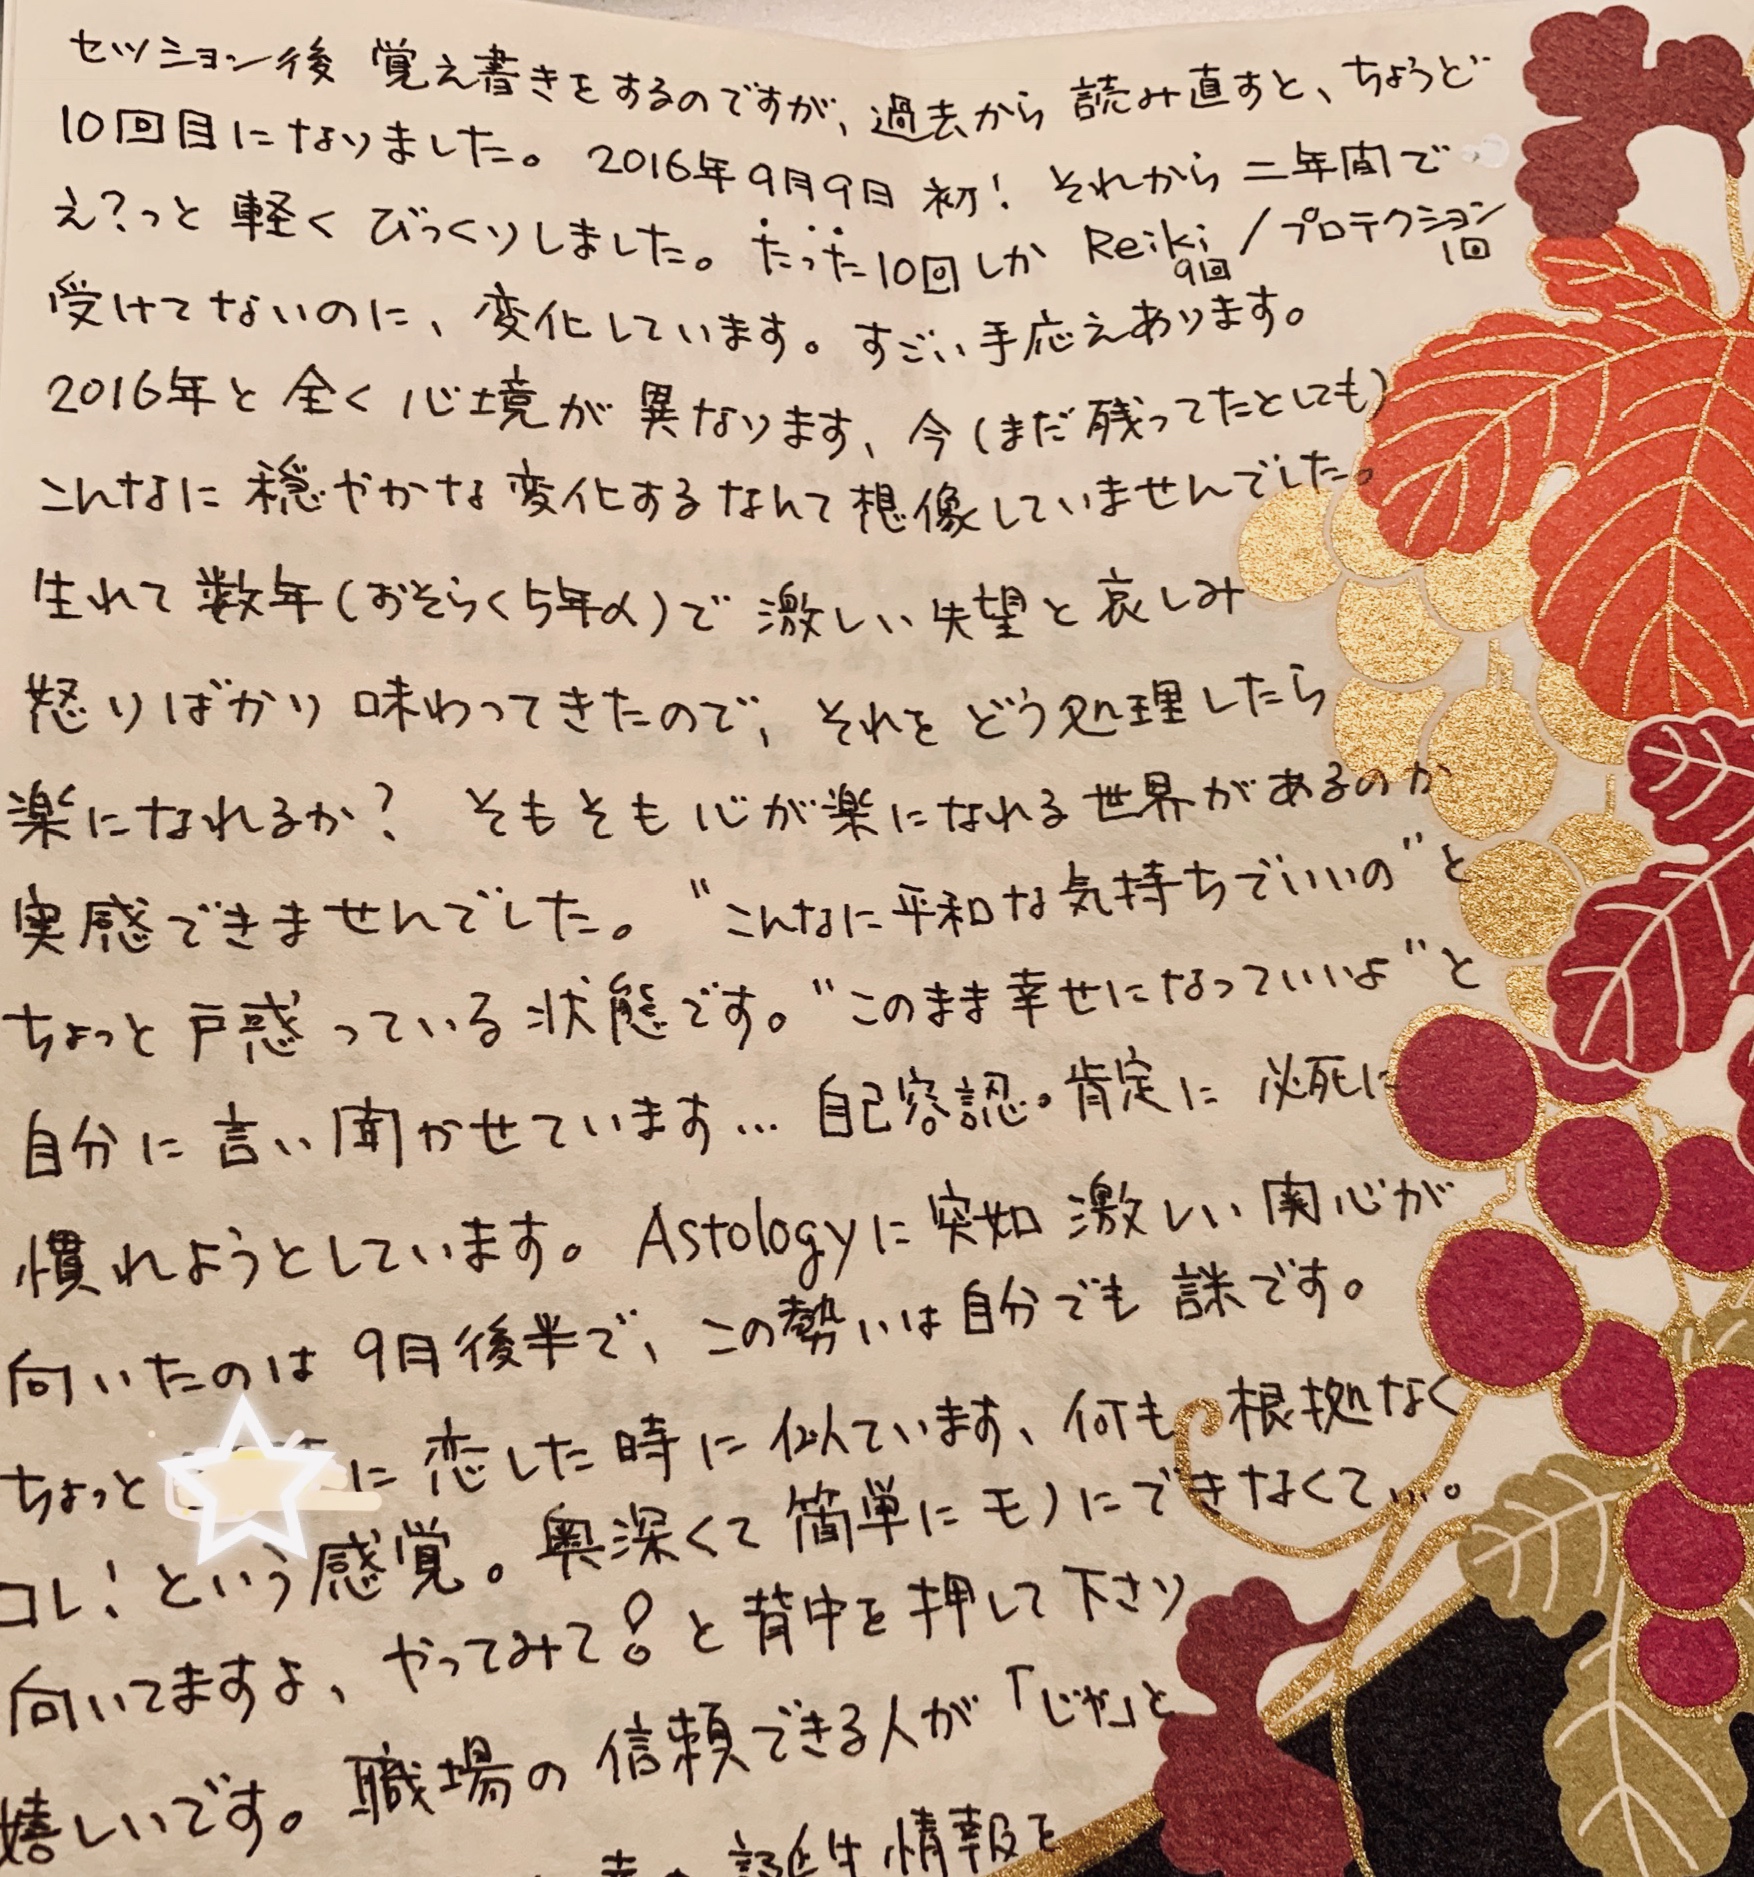 セッション後 覚え書きをするのですが、過去から 読み直すと、ちょうど
10回目になりました。 2016年9月9日 初! それから 二年間で
え?っと 軽く びっくりしました。たった10回しか Reiki/プロテクション
9回 1回
受けてないのに、変化しています。すごい手応えあります。
2016年と 全く 心境が 異なります、今(まだ残ってたとしても)
こんなに 穏やかな 変化するなんて想像していませんでした。
生れて 数年(おそらく5年)で 激しい 失望と 哀しみ
怒りばかり 味わってきたので、それを どう処理したら
楽になれるか? そもそも心が楽になれる世界があるのか
実感できませんでした。"こんなに平和な気持ちでいいの"と
ちょっと 戸惑っている状態です。"このまま幸せになっていいよ"と
自分に 言い聞かせています… 自己容認・肯定に 必死に
慣れようとしています。Astologyに突如 激しい関心が
向いたのは 9月後半で、この勢いは自分でも 謎です。
ちょっと に 恋した時に 似ています、何も 根拠なく
コレ!という感覚。奥深くて 簡単にモノにできなくて…。
向いてますよ、やってみて!と 背中を 押して 下さり
嬉しいです。職場の 信頼できる人が 「じゃ」と
誕生情報を